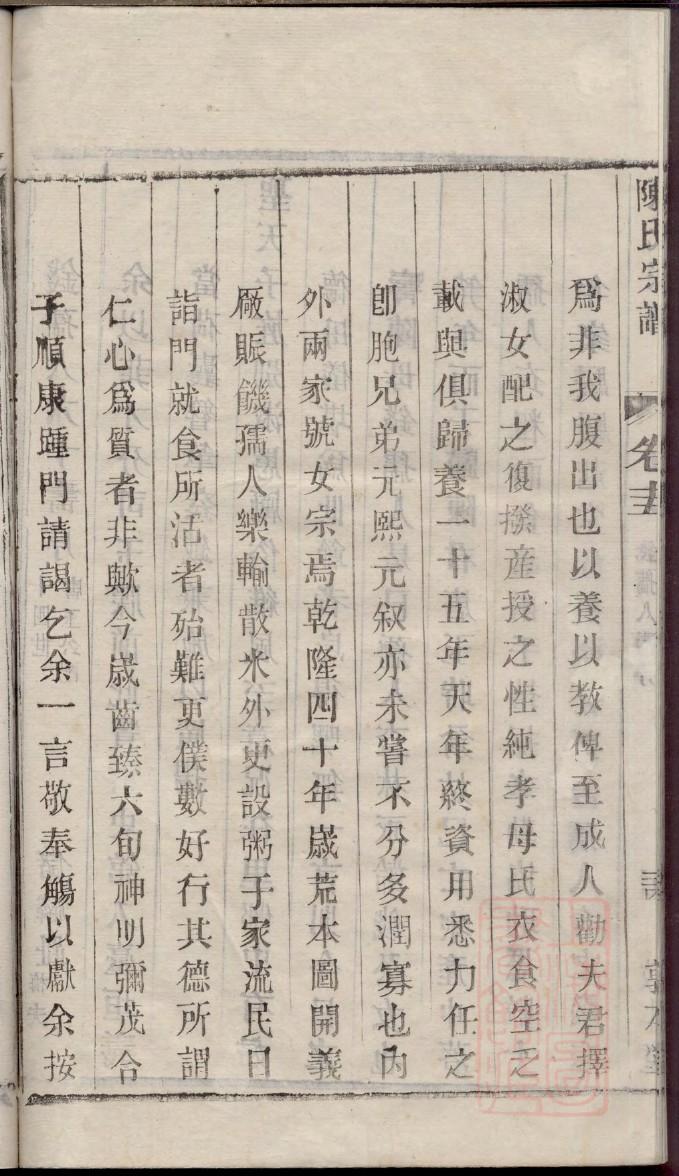 陳氏宗譜
卷
敦本堂
爲非我腹出也以養以教俾至成人勸夫君擇
淑女配之復撥産授之性純孝母氏衣食空乏
載與俱歸養一十五年天年終資用悉力任之
卽胞兄弟元熙元叙亦未嘗不分多潤寡也內
外兩家號女宗焉乾隆四十年歲荒本圖開義
廠賑饑孺人樂輸散米外更設粥于家流民日
詣門就食所活者殆難更僕數好行其德所謂
仁心爲質者非歟今歲齒臻六旬神明彌茂合
子順康踵門請謁乞余一言敬奉觴以獻余按